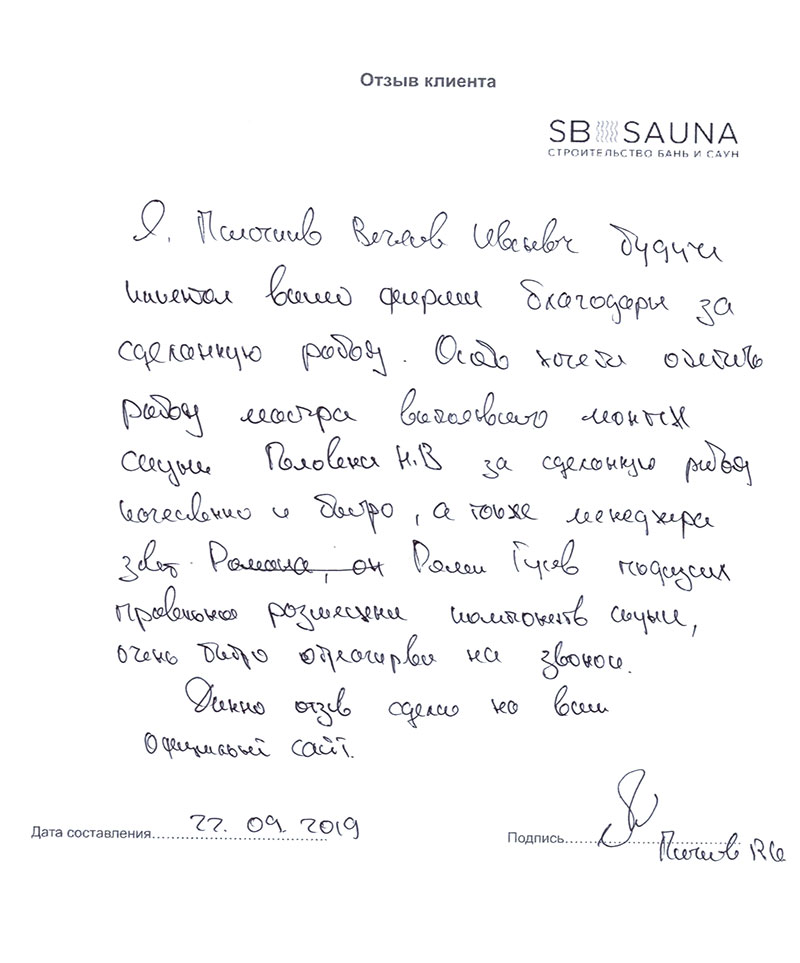 Отзыв клиента
SB SAUNA
СТРОИТЕЛЬСТВО БАНЬ И САУН
Я. Иванович будучи
клиентом вашей фирмы благодарен за
сделанную работу. Особо хочется отметить
работу мастера выполнявшего монтаж
сауны Н.В за сделанную работу
качественно и быстро, а также менеджера
зовут Романа, он Роман Гусев подсказал
правильное размещение компонентов сауны,
очень быстро на звонки.
Данный отзыв сделан на ваш
Официальный сайт.
Дата составления 22.09.2019
Подпись